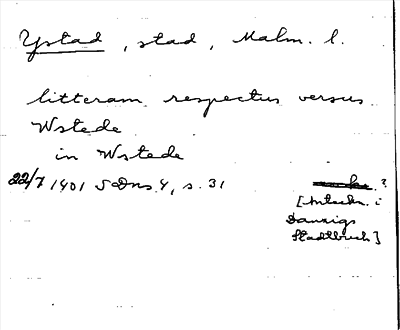 Ystad, stad, Malm. l.
litteram respectus versus
Wstede
in Wstede
22/7 1401 SDns. 4, s. 31
?
[Anteckn. i
Danzigs
Stadtbuch]